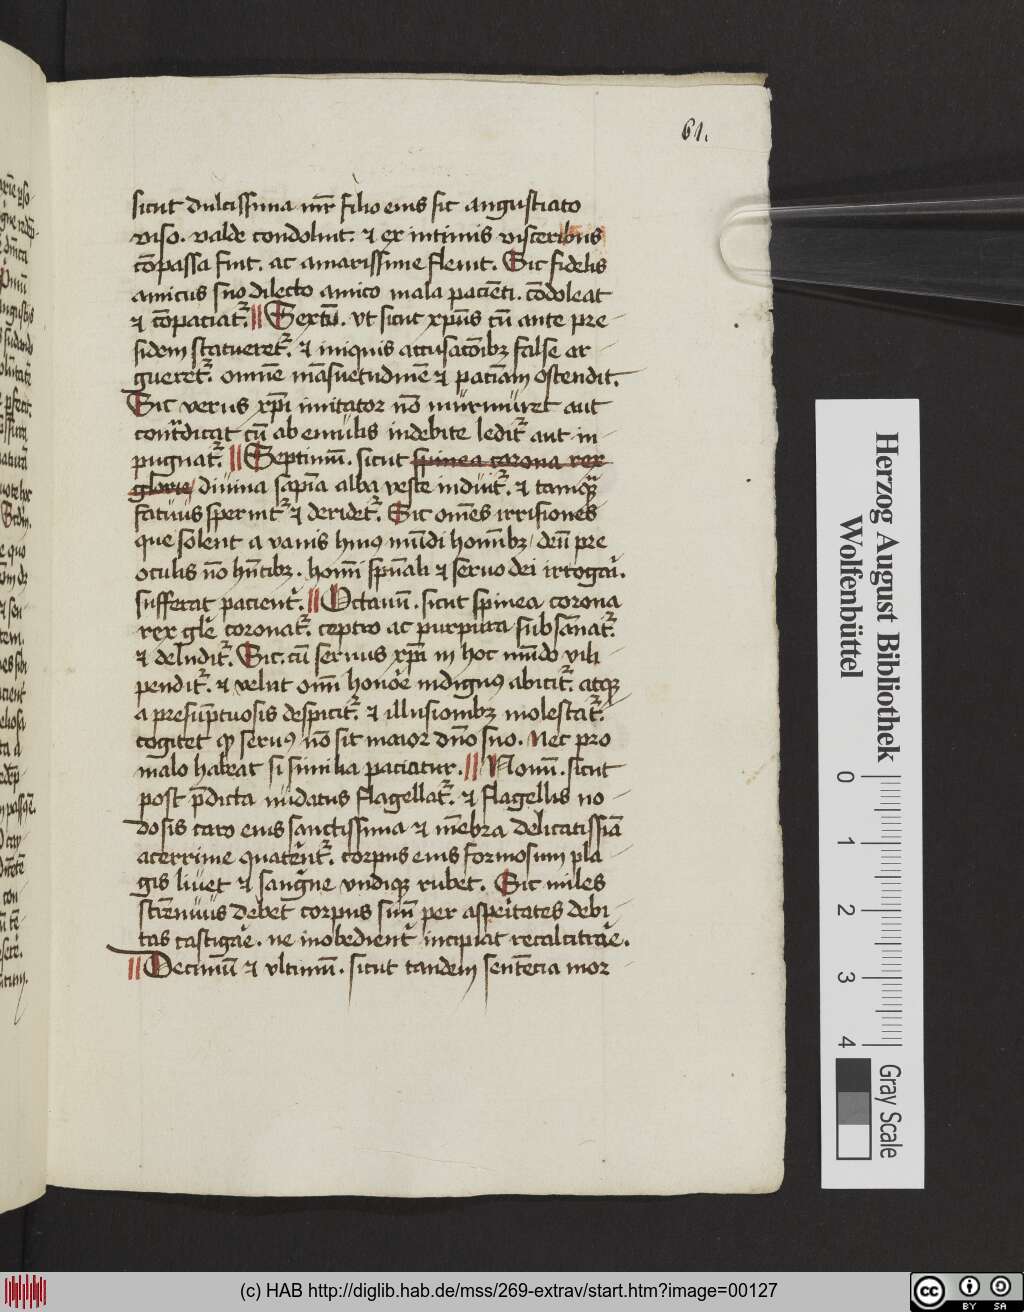 61.
sicut dulcissima mr̄ filio eius sic angustiato
viso. valde condoluit. ⁊ ex intimis visceribus
cōpassa fuit. ac amarissime fleuit. Sic fidelis
amicus suo dilecto amico mala paciēti. cōdoleat
⁊ cōpaciat᷑. || Sextū. vt sicut xp̄us cū ante pre
sidem statueret᷑. ⁊ iniquis accusatōibꝫ false ar
gueret᷑. omnē māsuetudinē ⁊ paciam̄ ostendit.
Sic verus xp̄i imitator nō murmuret aut
cont̄dicat cū ab emulis indebite ledit᷑ aut in
pugnat᷑. || Septimū. sicut spinea corona rex
glorie diuina sapīa alba veste induit᷑. ⁊ tamqꝫ
fatuus spernit᷑ ⁊ deridet᷑. Sic om̄es irrisiones
que solent a vanis huiꝰ mūdi homībꝫ / deū pre
oculis nō hn̄tibꝫ. homī spūali ⁊ seruo dei irrogari.
sufferat pacient᷑. || Octauū. sicut spinea corona
rex glē coronat᷑. ceptro ac purpura subsānat᷑.
⁊ deludit᷑. Sic. cū seruus xp̄i in hoc mūdo vili
pendit᷑. ⁊ velut om̄i honōe indignꝰ abicit᷑. atqꝫ
a presūptuosis despicit᷑. ⁊ illusionibꝫ molestat᷑.
cogitet ꝙ seruꝰ nō sit maior dn̄o suo. Nec pro
malo habeat si similia paciatur. || Nonū. sicut
post p̄dicta nudatus flagellat᷑. ⁊ flagellis no
dosis caro eius sanctissima ⁊ mēbra delicatissīa
acerrime quaciūt᷑. corpus eius formosum pla
gis liuet ⁊ sangne vndiqꝫ rubet. Sic miles
strēnuus debet corpus suū per asperitates debi
tas castigāe. ne inobedient᷑ incipiat recalcitrāe.
|| Decimū ⁊ vltimū. sicut tandem sentēcia mor
Herzog August Bibliothek
Wolfenbüttel
0 1 2 3 4
Gray Scale
(c) HAB http://diglib.hab.de/mss/269-extrav/start.htm?image=00127
cc BY SA